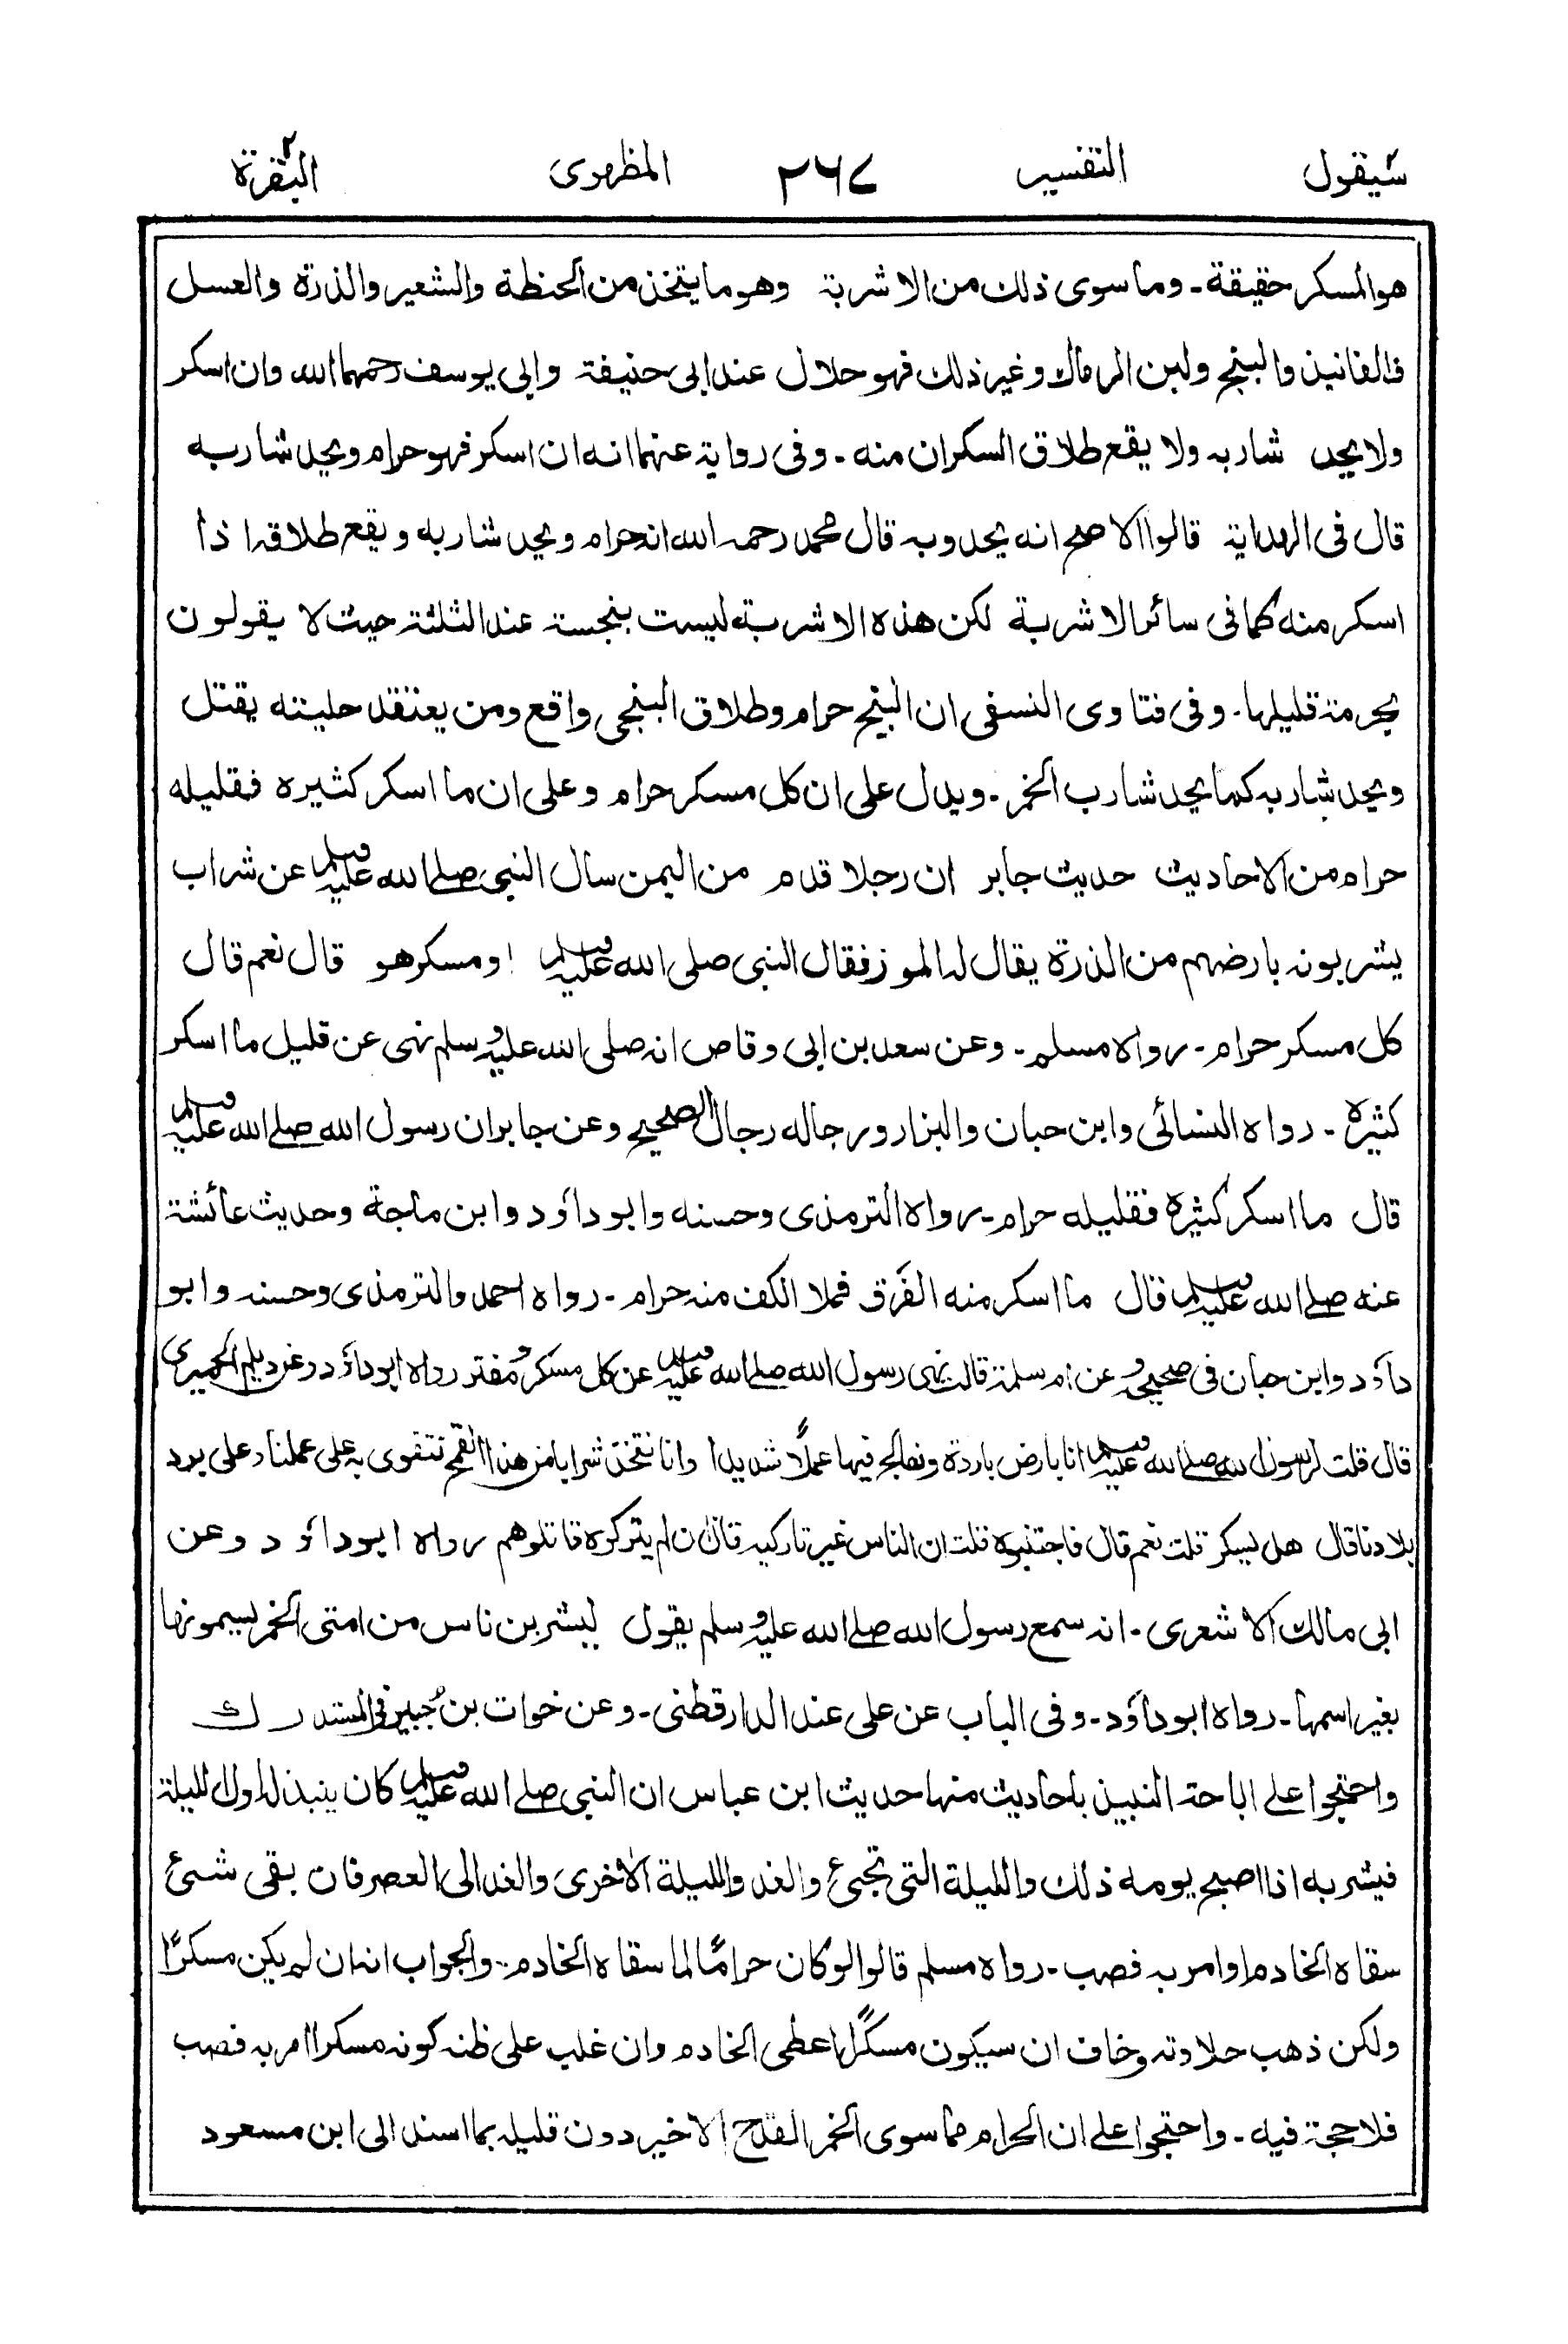 سيقول التفسير ٢٦٧ المظهرى البقرة ٢
هو المسكر حقيقة - وما سوى ذلك من الاشربة وهو ما يتخذ من الحنطة والشعير والذرة والعسل
والفانيذ والبنج ولبن الرماك وغير ذلك فهو حلال عند ابى حنيفة وابى يوسف رحمهما الله وان اسكر
ولا يحد شاربه ولا يقع طلاق السكران منه - وفى رواية عنهما انه ان اسكر فهو حرام ويحد شاربه
قال فى الهداية قالوا الاصح انه يحد وبه قال محمد رحمه الله انه حرام ويحد شاربه ويقع طلاقه اذا
اسكر منه كما فى سائر الاشربة لكن هذه الاشربة ليست بنجسة عند الثلثة حيث لا يقولون
بحرمة قليلها - وفى فتاوى النسفى ان البنج حرام وطلاق البنجى واقع ومن يعتقد حليته يقتل
ويحد شاربه كما يحد شارب الخمر - ويدل على ان كل مسكر حرام وعلى ان ما اسكر كثيره فقليله
حرام من الاحاديث حديث جابر ان رجلا قدم من اليمن سال النبي صلى الله عليه وسلم عن شراب
يشربونه بارضهم من الذرة يقال له الموز فقال النبى صلى الله عليه وسلم او مسكر هو قال نعم قال
كل مسكر حرام - رواه مسلم - وعن سعد بن ابى وقاص انه صلى الله عليه وسلم نهى عن قليل ما اسكر
كثيره - رواه النسائى وابن حبان والبزار ورجاله رجال الصحيح وعن جابر ان رسول الله صلى الله عليه وسلم
قال ما اسكر كثيره فقليله حرام - رواه الترمذى وحسنه وابو داؤد وابن ماجة وحديث عائشة
عنه صلى الله عليه وسلم قال ما اسكر منه الفرق فملا الكف منه حرام - رواه احمد والترمذى وحسنه وابو
داؤد وابن حبان فى صحيحه وعن ام سلمة قالت نهى رسول الله صلى الله عليه وسلم عن كل مسكر ومفتر رواه ابو داؤد وعن ديلم الحميرى
قال قلت لرسول الله صلى الله عليه وسلم انا بارض باردة ونعالج فيها عملًا شديدا وانا نتخذ شرابا من هذا القمح نتقوى به على عملنا وعلى برد
بلادنا قال هل يسكر قلت نعم قال فاجتنبوه قلت ان الناس غير تاركيه قال ان لم يتركوه قاتلوهم رواه ابو داؤد وعن
ابى مالك الاشعرى - انه سمع رسول الله صلى الله عليه وسلم يقول ليشربن ناس من امتى الخمر يسمونها
بغير اسمها - رواه ابو داؤد - وفى الباب عن على عند الدارقطنى - وعن خوات بن جبير فى المستدرك
واحتجوا على اباحة النبيذ باحاديث منها حديث ابن عباس ان النبى صلى الله عليه وسلم كان ينبذ له اول الليلة
فيشربه اذا اصبح يومه ذلك والليلة التى تجىء والغد والليلة الاخرى والغد الى العصر فان بقى شىء
سقاه الخادم او امر به فصب - رواه مسلم قالوا لو كان حرامًا لما سقاه الخادم - والجواب انه ان لم يكن مسكرًا
ولكن ذهب حلاوته وخاف ان سيكون مسكرًا اعطى الخادم وان غلب على ظنه كونه مسكرا امر به فصب
فلا حجة فيه - واحتجوا على ان الحرام مما سوى الخمر القدح الاخير دون قليله بما اسند الى ابن مسعود